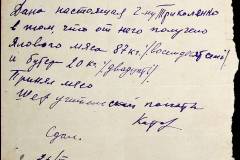 Дана настоящая 2-му Триколенко
в том, что от него получено
Ялового мяса 87 кг. /восемьдесят семь/
и бугер 20 кг. /двадцать/
Принял мясо
Шеф
Сдал.